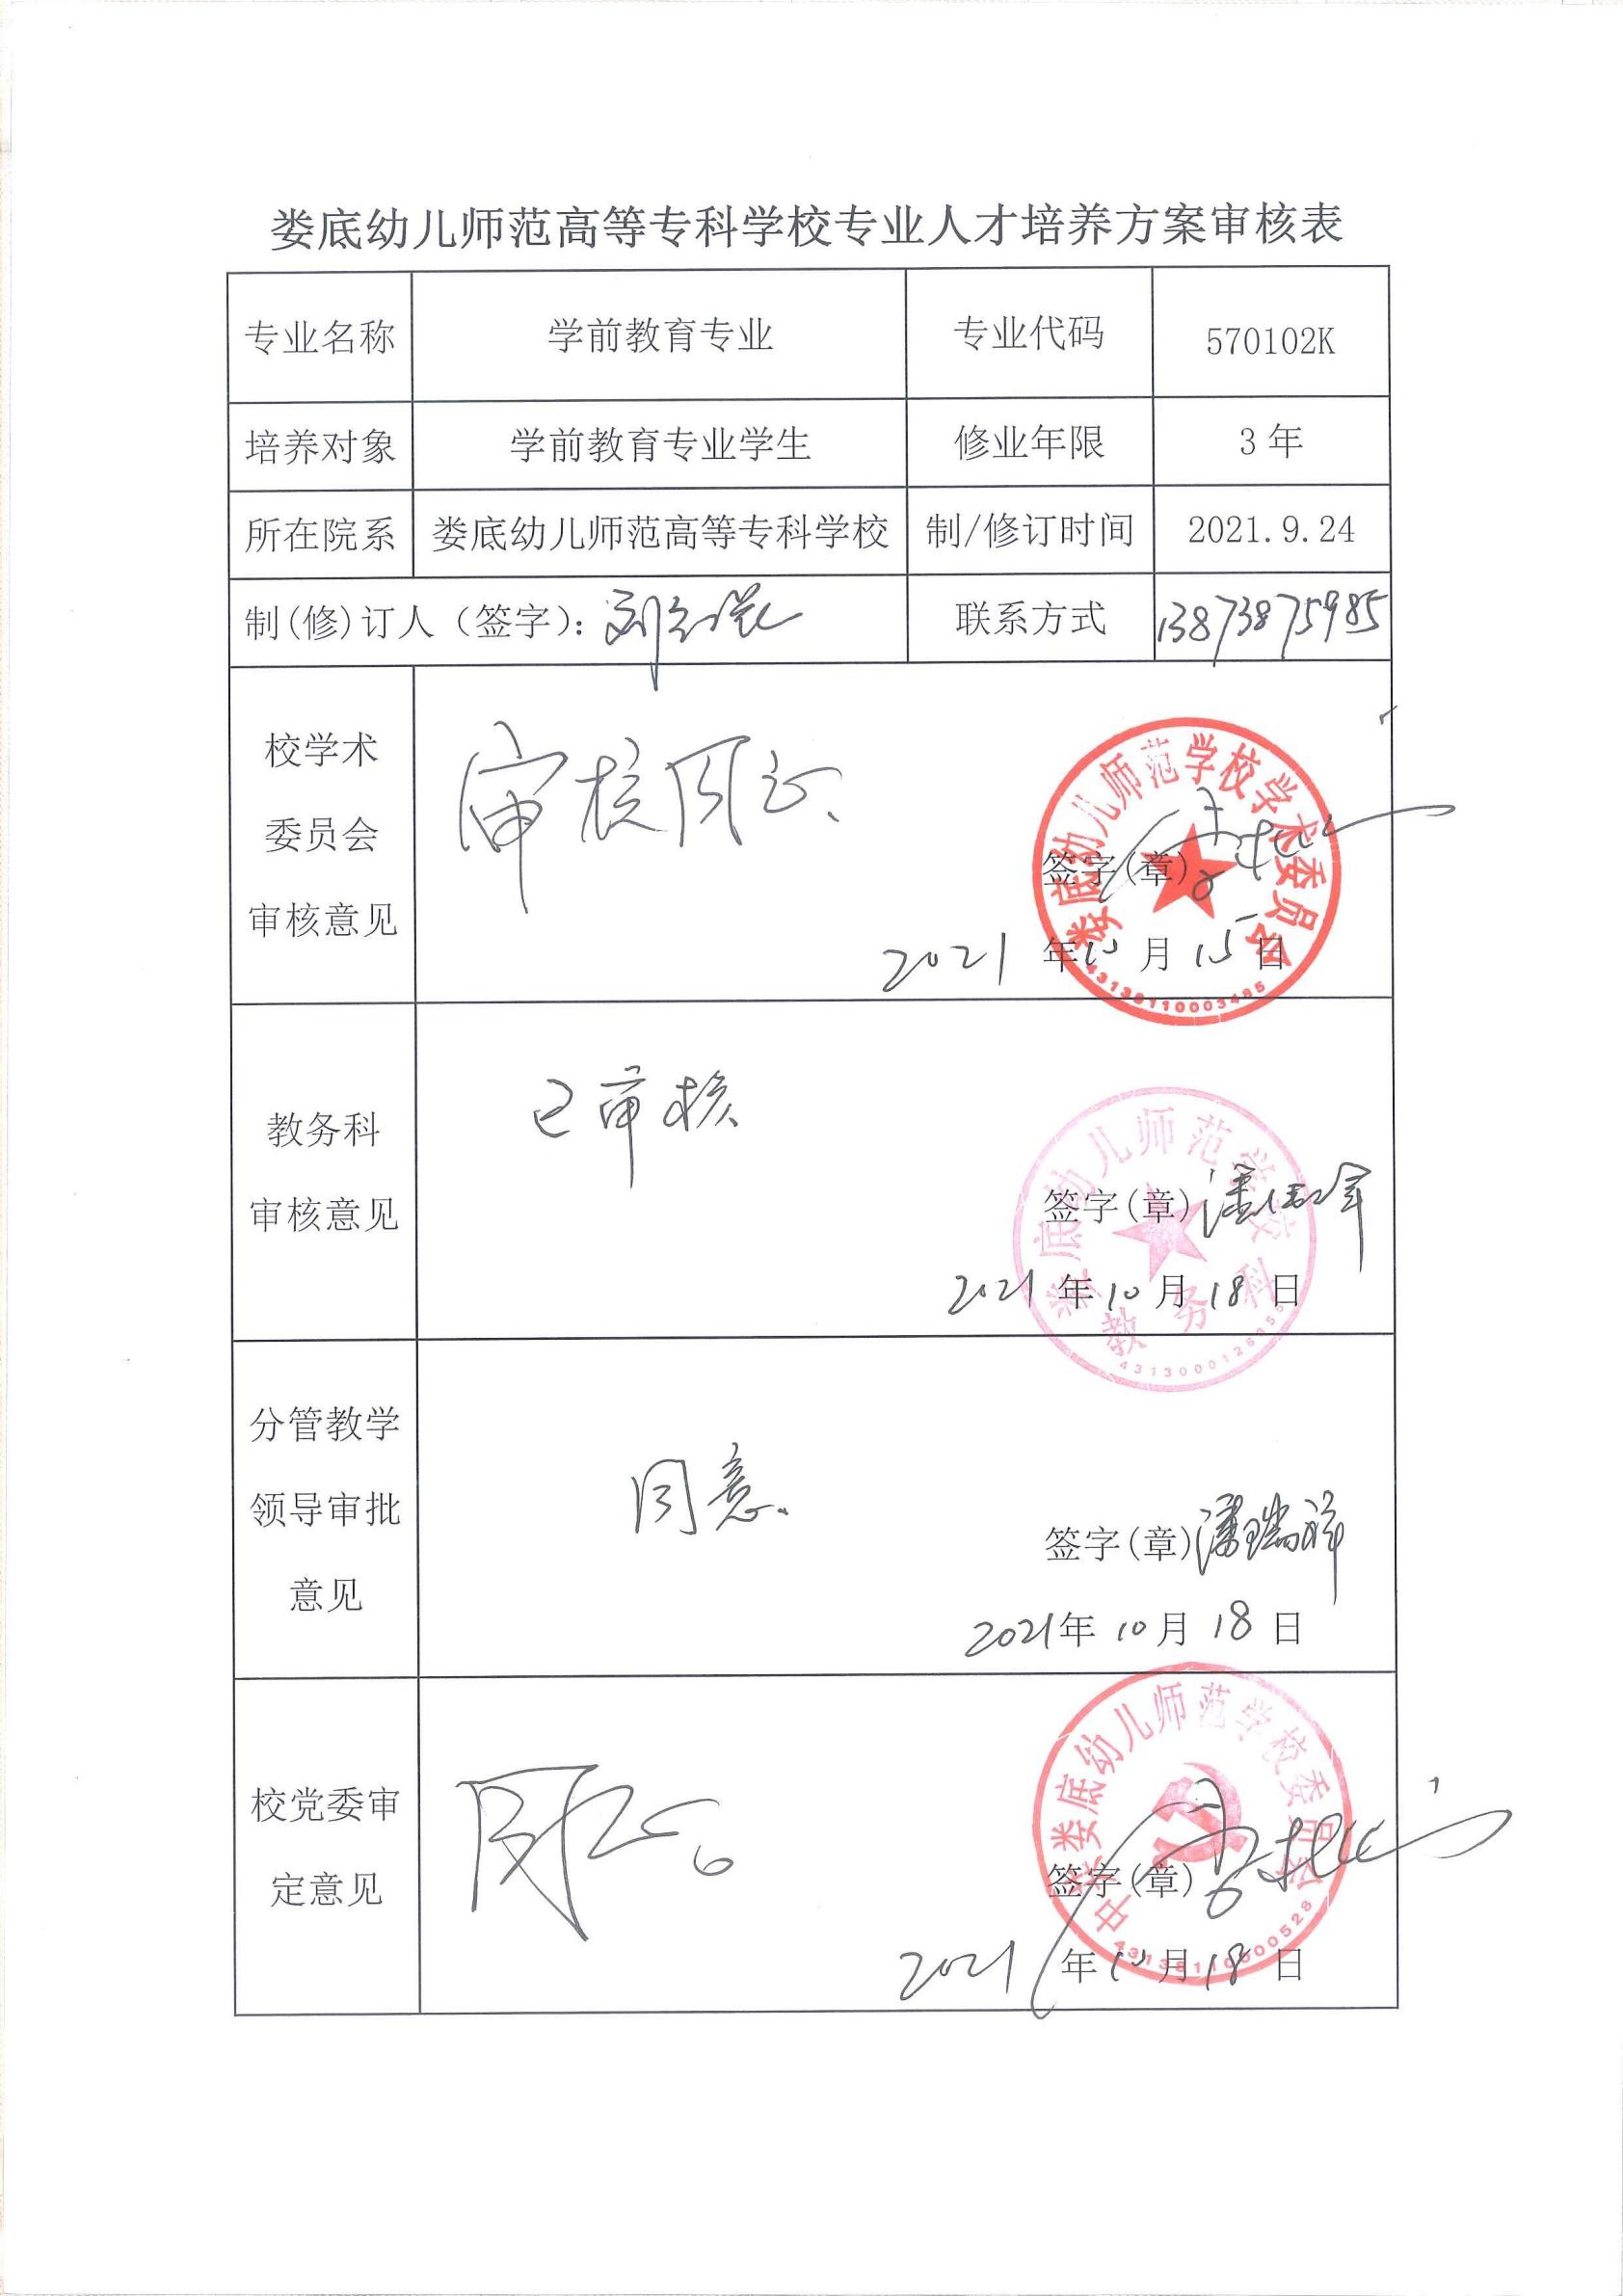 娄底幼儿师范高等专科学校专业人才培养方案审核表
专业名称 学前教育专业 专业代码 570102K
培养对象 学前教育专业学生 修业年限 3年
所在院系 娄底幼儿师范高等专科学校 制/修订时间 2021.9.24
制(修)订人（签字）： 联系方式 13873875985
校学术
委员会
审核意见
审核同意
娄底幼儿师范学校学术委员会
签字(章)
2021 年10月15日
教务科
审核意见
已审核
娄底幼儿师范学校
教务科
签字(章)
2021 年10月18日
分管教学
领导审批
意见
同意
签字(章)潘瑞祥
2021年10月18日
校党委审
定意见
同意
中共娄底幼儿师范学校委员会
签字(章)
2021 年10月18日